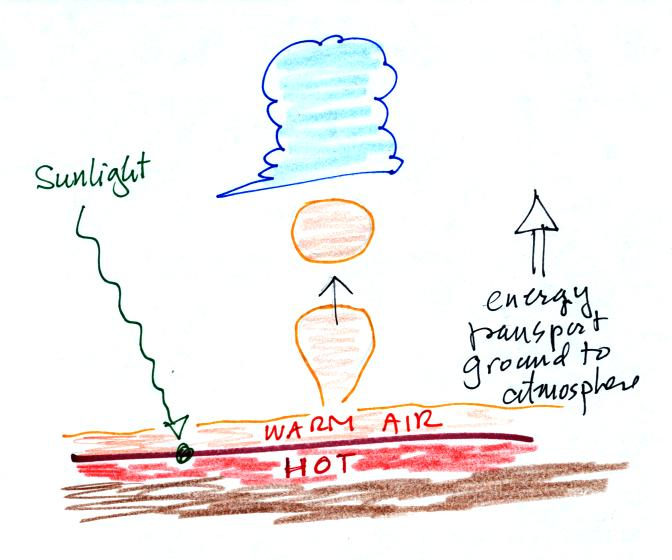 Sunlight
energy
transport
ground to
atmosphere
WARM AIR
HOT